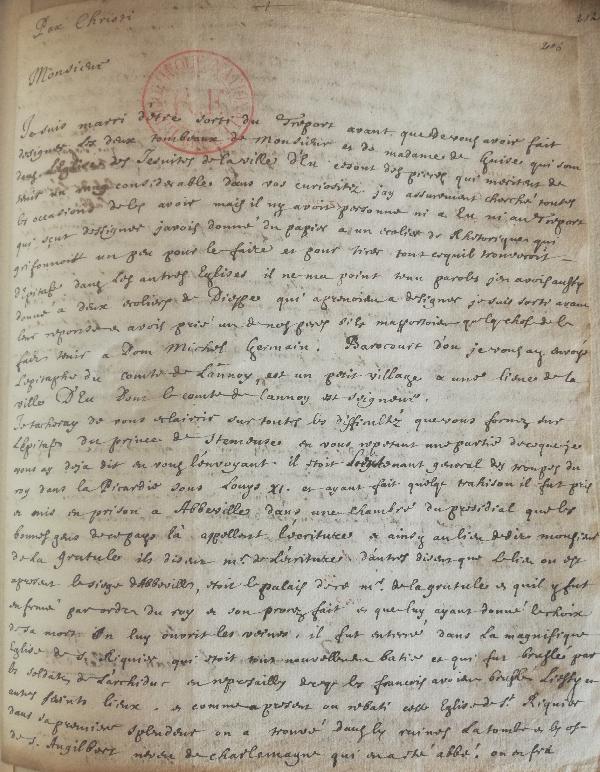 Pax Christi
212
206
Monsieur
Je suis marri d'être sorti du Tréport avant que de vous avoir fait
designer les deux tombeaux de Monsieur et de madame de Guise qui sont
dans l'Eglise des Jesuites de la ville d'Eu ce sont des pieces qui meritent de
tenir un rang considerable dans vos curiositez jay assurement cherché toutes
les occasions de les avoir mais il ny avoit personne ni a Eu ni au Treport
qui sçeut dessigner javois donné du papier a un ecolier de Rhetorique qui
grifonnoit un peu pour le faire et pour tirer tout ce quil trouveroit
d'épitafe dans les autres Eglises il ne ma point tenu parole jen avois aussy
donné a deux ecoliers de Dieppe qui aprenoient a designer je suis sorti avant
leur reponse et avois prié un de nos peres sils m'apportoient quelq chose de le
faire tenir a Dom Michel Germain. Barocourt d'ou je vous ay envoyé
l'epitaphe du comte de Lannoy, est un petit village a une lieue de la
ville D'Eu dont le comte de Lannoy est seigneur.
Je tacheray de vous eclaircir sur toutes les difficultéz que vous formez sur
l'épitafe du prince de Stemeuse en vous repetant une partie de ce que je
vous ay deja dit en vous l'envoyant. il étoit lieutenant general des troupes du
roy dans la Picardie sous Louys XI. et ayant fait quelq trahison il fut pris
et mis en prison a Abbeville dans une chambre du presidial que les
bonnes gens de ce pays là appellent lecriture et ainsy au lieu de dire monsieur
de la gratule ils disent mr. de lécriture d'autres disent que le lieu ou est
apresent le siege d'Abbeville, étoit le palais dece mr. de la gratule et quil y fut
enfermé par ordre du roy et son procez fait et que luy ayant donné le choix
de sa mort on luy ouvrit les veines. il fut enterré dans la magnifique
Eglise de S. Riquier qui étoit tout nouvellement batie et qui fut bruslée par
les soldats de Larchiduc en represailles de ce que les francois avoient bruslé
autres saints lieux. et comme apresent on rebati cette Eglise de St. Riquier
dans sa premiere splendeur on a trouvé dans les ruines la tombe et les os
de S. Angilbert neveu de charlemagne qui en a été abbé. on en fra